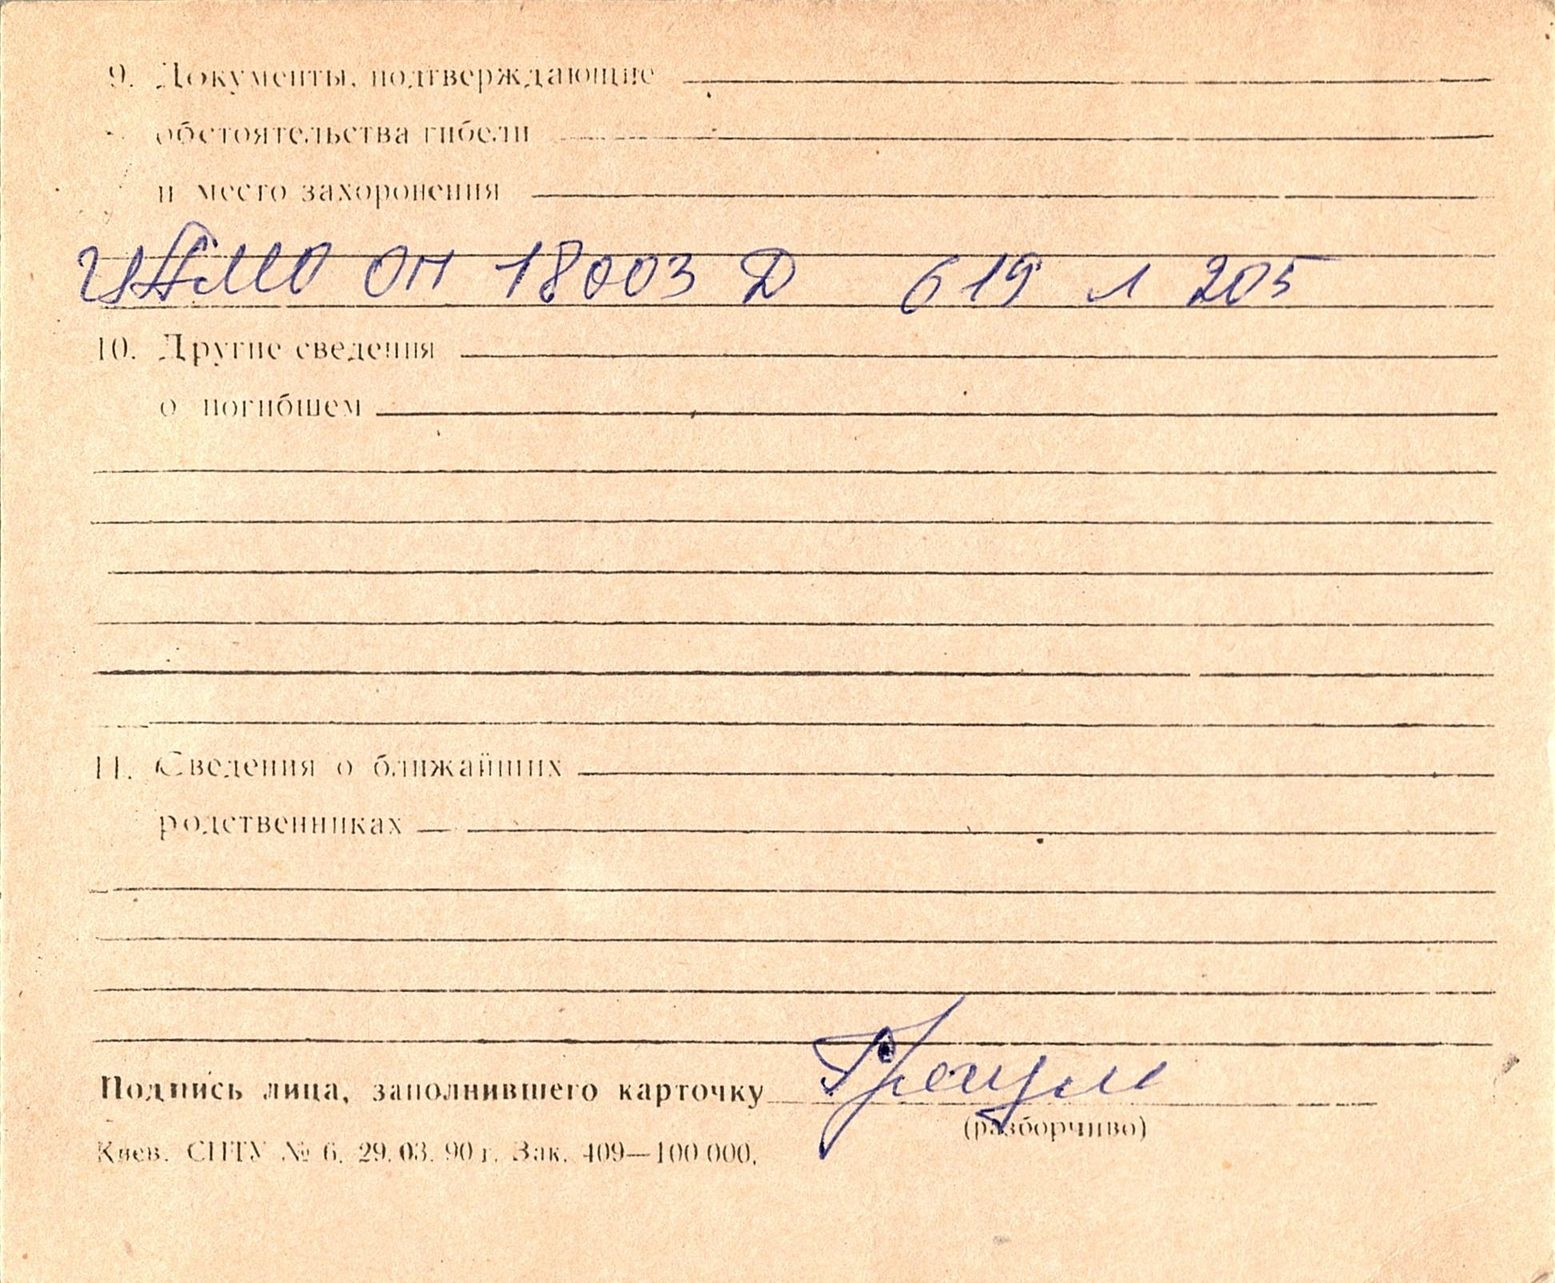 9. Документы, подтверждающие
обстоятельства гибели
и место захоронения
ЦАМО ОП 18003 Д 619 Л 205
10. Другие сведения
о погибшем
11. Сведения о ближайших
родственниках
Подпись лица, заполнившего карточку
(разборчиво)
Киев. СПТУ № 6. 29.03.90 г. Зак. 409—100 000.